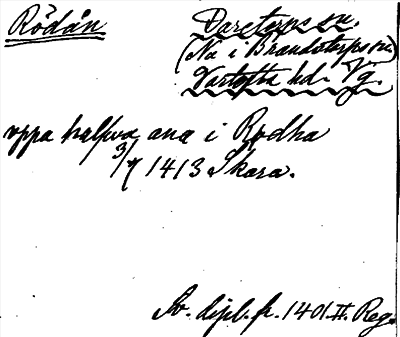 Rödån
Daretorps sn.
(Nu i Brandstorps sn)
Vartofta hd. Vg.
vppa halfwa ana i Rødha
3/7 1413 Skara.
Sv. dipl. fr. 1401 II. Reg.